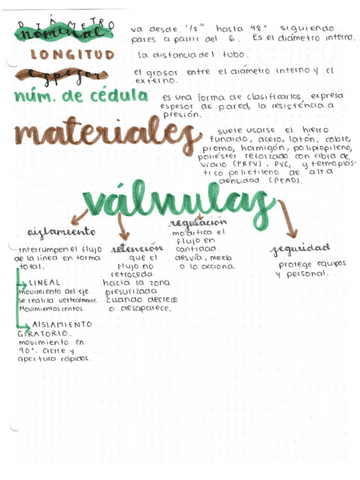 DIÁMETRO
nominal
va desde "1/8" hasta 48" siguiendo
pares a partir del 6. Es el diámetro interno.
LONGITUD
la distancia del tubo.
espesor
el grosor entre el diámetro interno y el
externo.
núm. de cédula
es una forma de clasificarlos, expresa
espesor de pared, la resistencia a
presión.
materiales
suele usarse el hierro
fundido, acero, latón, cobre,
plomo, hormigón, polipropileno,
poliéster reforzado con fibra de
vidrio (PRFV), PVC, y termoplás-
tico polietileno de alta
densidad (PEAD).
válvulas
aislamiento
interrumpen el flujo
de la línea en forma
total.
LINEAL
movimiento del eje
se realiza verticalmente.
Movimientos lentos.
AISLAMIENTO
GIRATORIO.
movimiento en
90°. Cierre y
apertura rápidos.
retención
que el
flujo no
retroceda
hacia la zona
presurizada
cuando decrece
o desaparece.
regulación
modifica el
flujo en
cantidad
desvía, mezcla
o lo acciona.
seguridad
protege equipos
y personal.